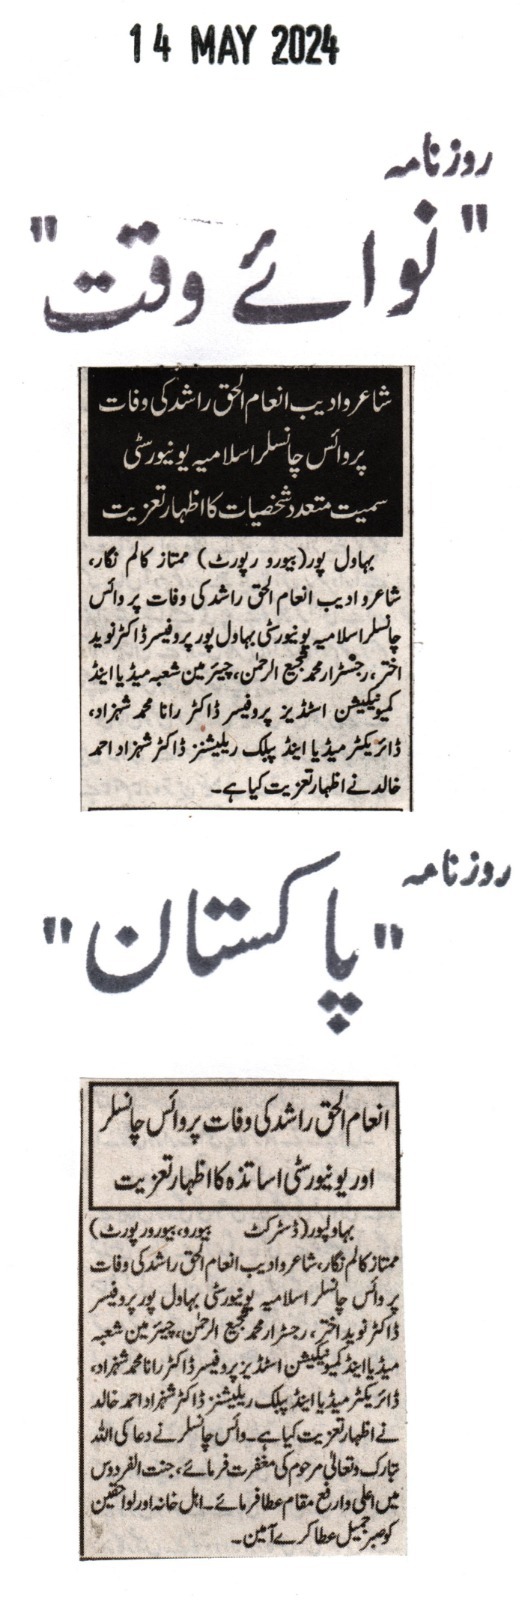 14 MAY 2024
روزنامہ
"نوائے وقت"
شاعر و ادیب انعام الحق راشد کی وفات
پر وائس چانسلر اسلامیہ یونیورسٹی
سمیت متعدد شخصیات کا اظہار تعزیت
بہاول پور (بیورو رپورٹ) ممتاز کالم نگار،
شاعر و ادیب انعام الحق راشد کی وفات پر وائس
چانسلر اسلامیہ یونیورسٹی بہاول پور پروفیسر ڈاکٹر نوید
اختر، رجسٹرار محمد شجیع الرحمٰن، چیئرمین شعبہ میڈیا اینڈ
کمیونیکیشن اسٹڈیز پروفیسر ڈاکٹر رانا محمد شہزاد،
ڈائریکٹر میڈیا اینڈ پبلک ریلیشنز ڈاکٹر شہزاد احمد
خالد نے اظہار تعزیت کیا ہے۔
روزنامہ
"پاکستان"
انعام الحق راشد کی وفات پر وائس چانسلر
اور یونیورسٹی اساتذہ کا اظہار تعزیت
بہاولپور (ڈسٹرکٹ بیورو، بیورورپورٹ)
ممتاز کالم نگار، شاعر و ادیب انعام الحق راشد کی وفات
پر وائس چانسلر اسلامیہ یونیورسٹی بہاول پور پروفیسر
ڈاکٹر نوید اختر، رجسٹرار محمد شجیع الرحمٰن، چیئرمین شعبہ
میڈیا اینڈ کمیونیکیشن اسٹڈیز پروفیسر ڈاکٹر رانا محمد شہزاد،
ڈائریکٹر میڈیا اینڈ پبلک ریلیشنز ڈاکٹر شہزاد احمد خالد
نے اظہار تعزیت کیا ہے۔ وائس چانسلر نے دعا کی اللہ
تبارک وتعالیٰ مرحوم کی مغفرت فرمائے، جنت الفردوس
میں اعلی وارفع مقام عطا فرمائے۔ اہل خانہ اور لواحقین
کو صبر جمیل عطا کرے آمین۔